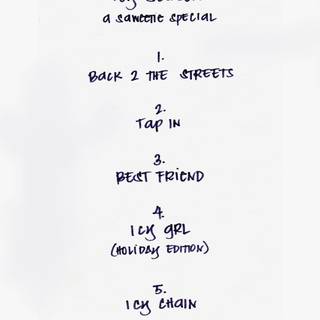 a SAWEETIE SPECIAL
1.
BACK 2 THE STREETS
2.
TAP IN
3.
BEST FRIEND
4.
ICY GRL
(HOLIDAY EDITION)
5.
ICY CHAIN